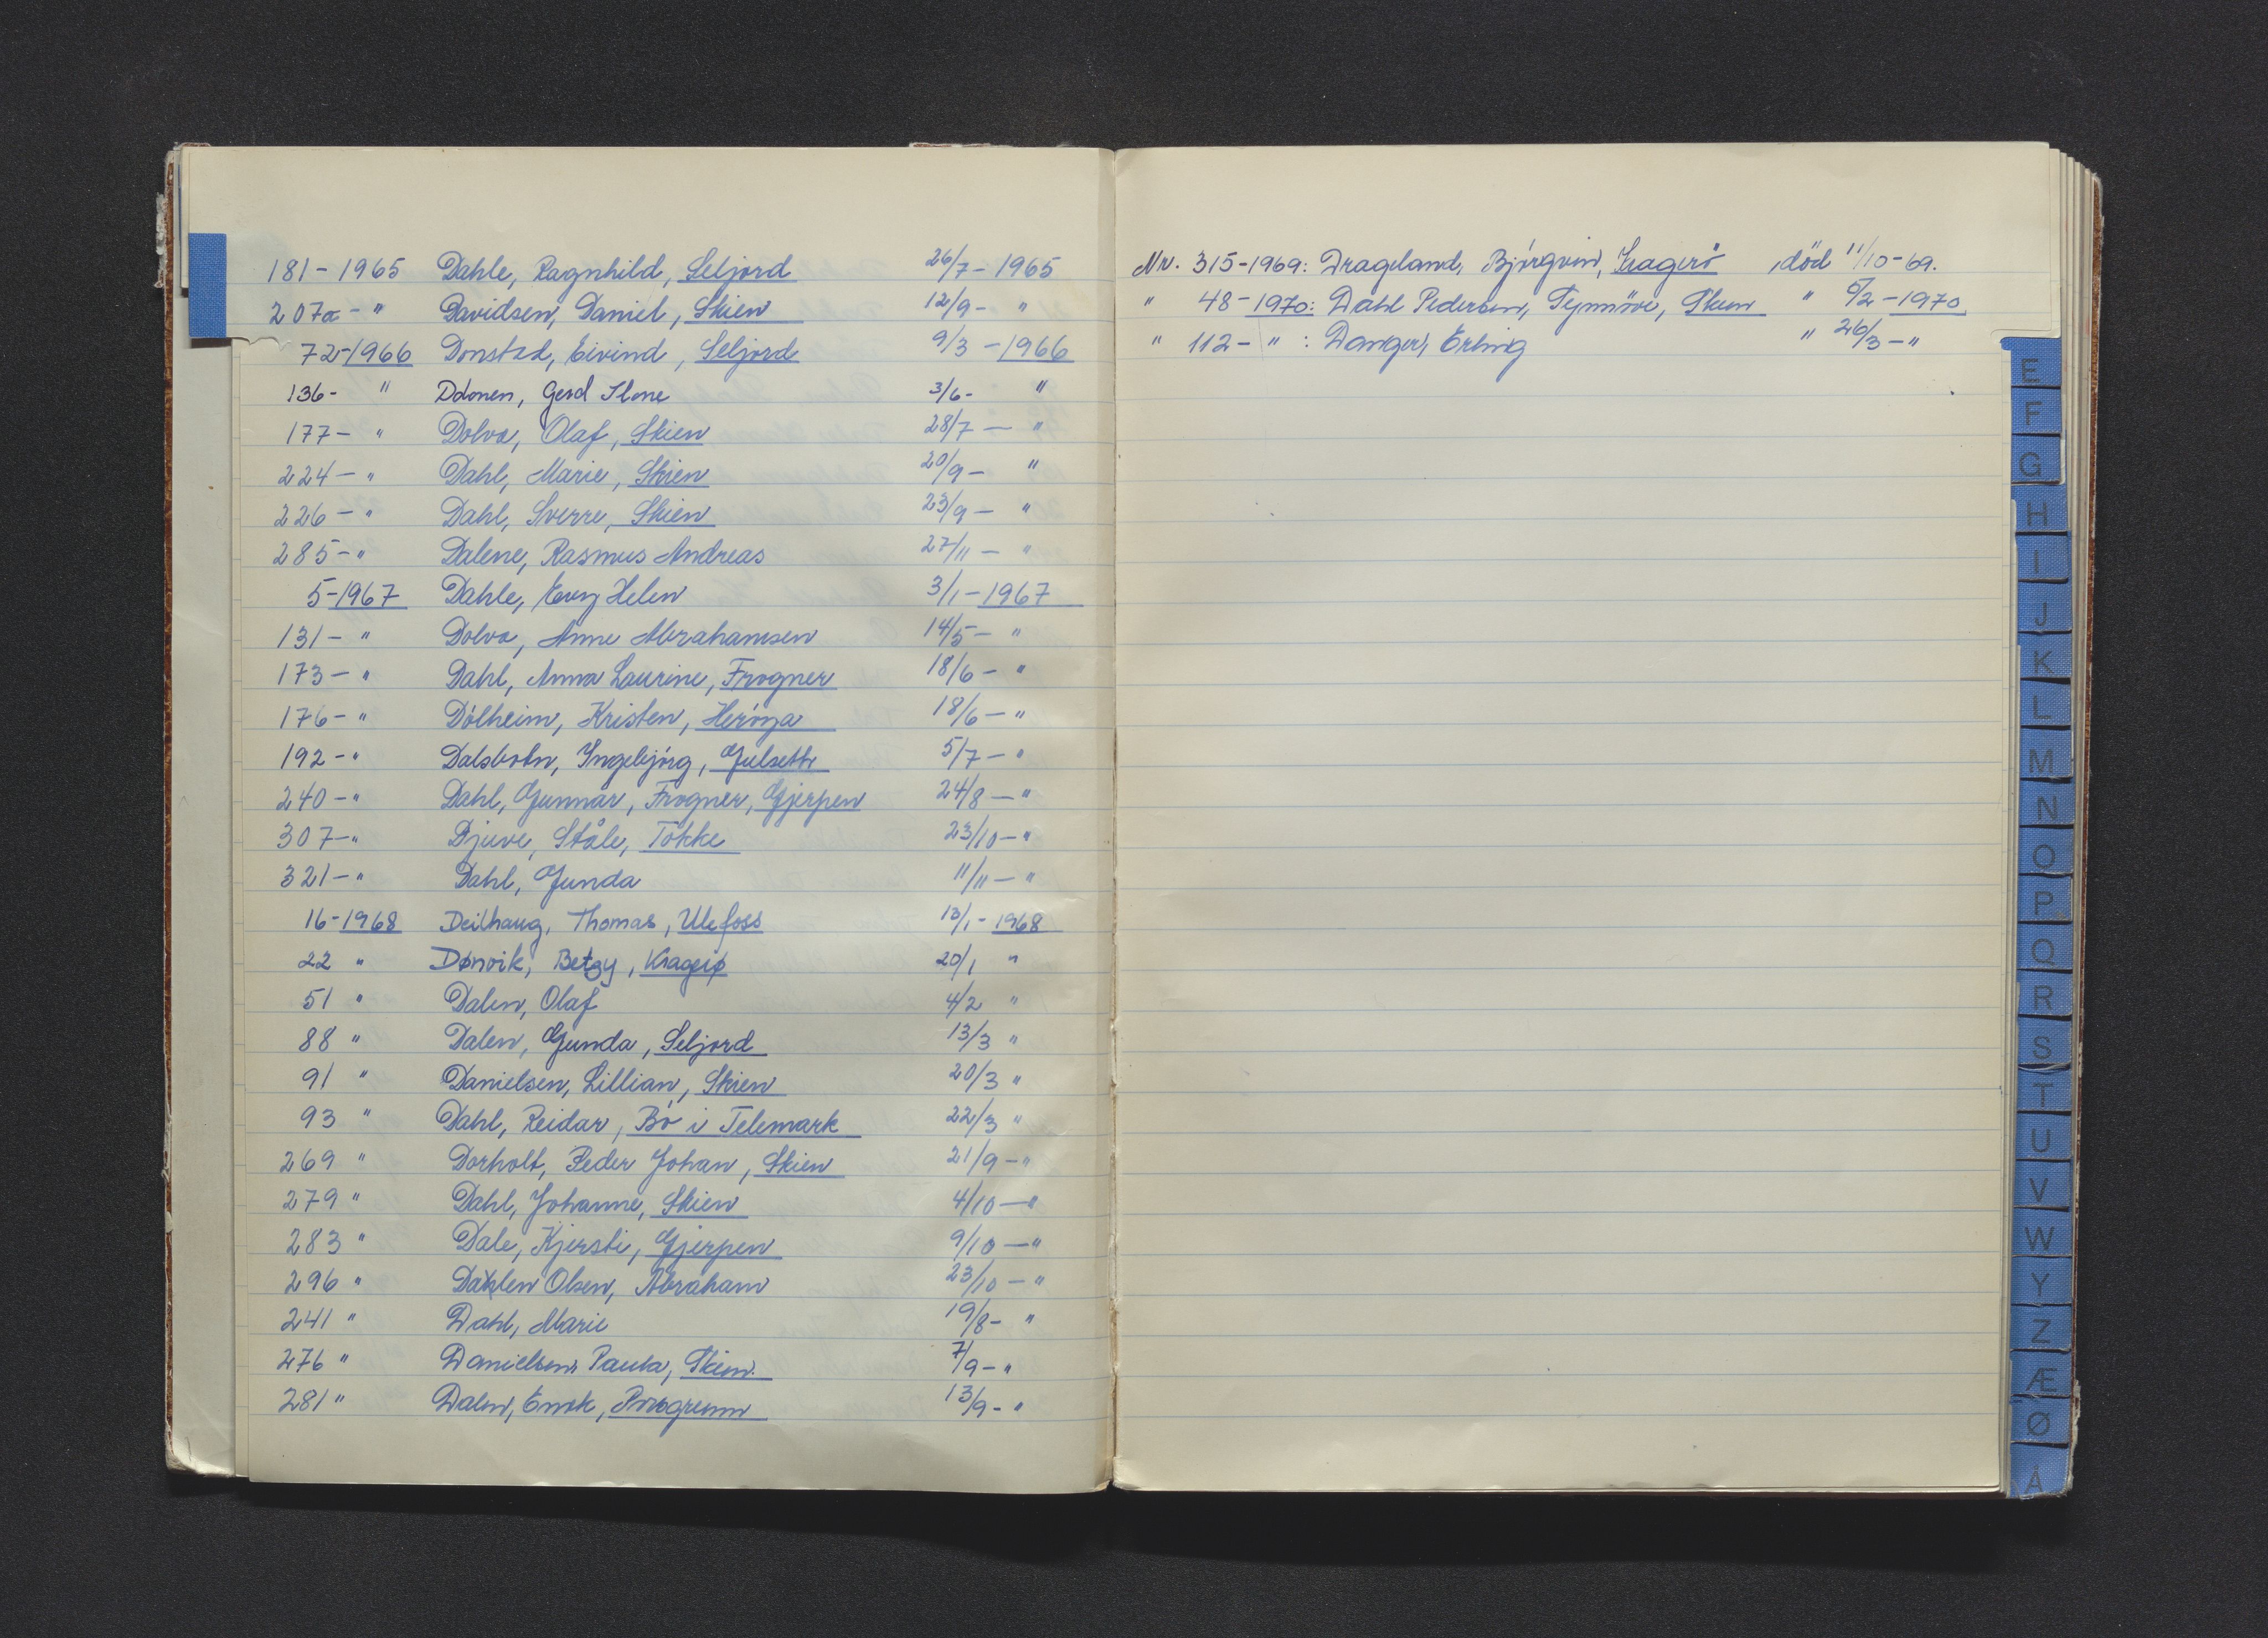 181 - 1965 Dahle, Ragnhild, Seljord 26/7 - 1965
207a - " Davidsen, Daniel, Skien 12/9 - "
72 - 1966 Donstad, Eivind, Seljord 9/3 - 1966
136 - " Gerd 3/6 - "
177 - " Dolva, Olaf, Skien 28/7 - "
224 - " Dahl, Marie, Skien 20/9 - "
226 - " Dahl, Sverre, Skien 23/9 - "
285 - " Dalene, Rasmus Andreas 27/11 - "
5 - 1967 Dahle, Evy Helen 3/1 - 1967
131 - " Dolva, Anne Abrahamsen 14/5 - "
173 - " Dahl, Anna Laurine, Frogner 18/6 - "
176 - " Dólheim, Kristen, Heróya 18/6 - "
192 - " Dalsbotn, Ingebjórg, Gulsett 5/7 - "
240 - " Dahl, Gunnar, Frogner, Gjerpen 24/8 - "
307 - " Djuve, Ståle, Tokke 23/10 - "
321 - " Dahl, Gunda 11/11 - "
16 - 1968 Deilhaug, Thomas, Ulefoss 13/1 - 1968
22 " Dønvik, Betzy, Kragerø 20/1 "
51 " Dalen, Olaf 4/2 "
88 " Dalen, Gunda, Seljord 13/3 "
91 " Danielsen, Lillian, Skien 20/3 "
93 " Dahl, Reidar, Bó i Telemark 22/3 "
269 " Dorholt, Peder Johan, Skien 21/9 - "
279 " Dahl, Johanne, Skien 4/10 - "
283 " Dale, Kjersti, Gjerpen 9/10 - "
296 " Olsen, Abraham 23/10 - "
241 " Dahl, Marie 19/8 - "
276 " Danielsen, Paula, Skien. 7/9 - "
281 " Dalen, Enok, Porsgrunn 13/9 - "
Nr. 315 - 1969: Drageland, Bjórgvin, Kragerö, död 11/10 - 69.
" 48 - 1970: Dahl Pedersen, Synnöve, Skien " 5/2 - 1970.
" 112 - " : Danger, Erling " 26/3 - "
E
F
G
H
I
J
K
L
M
N
O
P
Q
R
S
T
U
V
W
Y
Z
Æ
Ø
Å